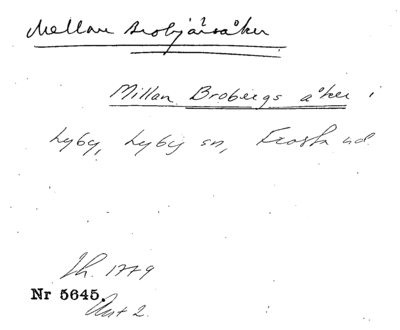 Mellan Brobjärsåker
Millan Brobergs åker i
Lyby, Lyby sn, Frosta hd
Lh. 1779
Nr 5645.
Akt 2.